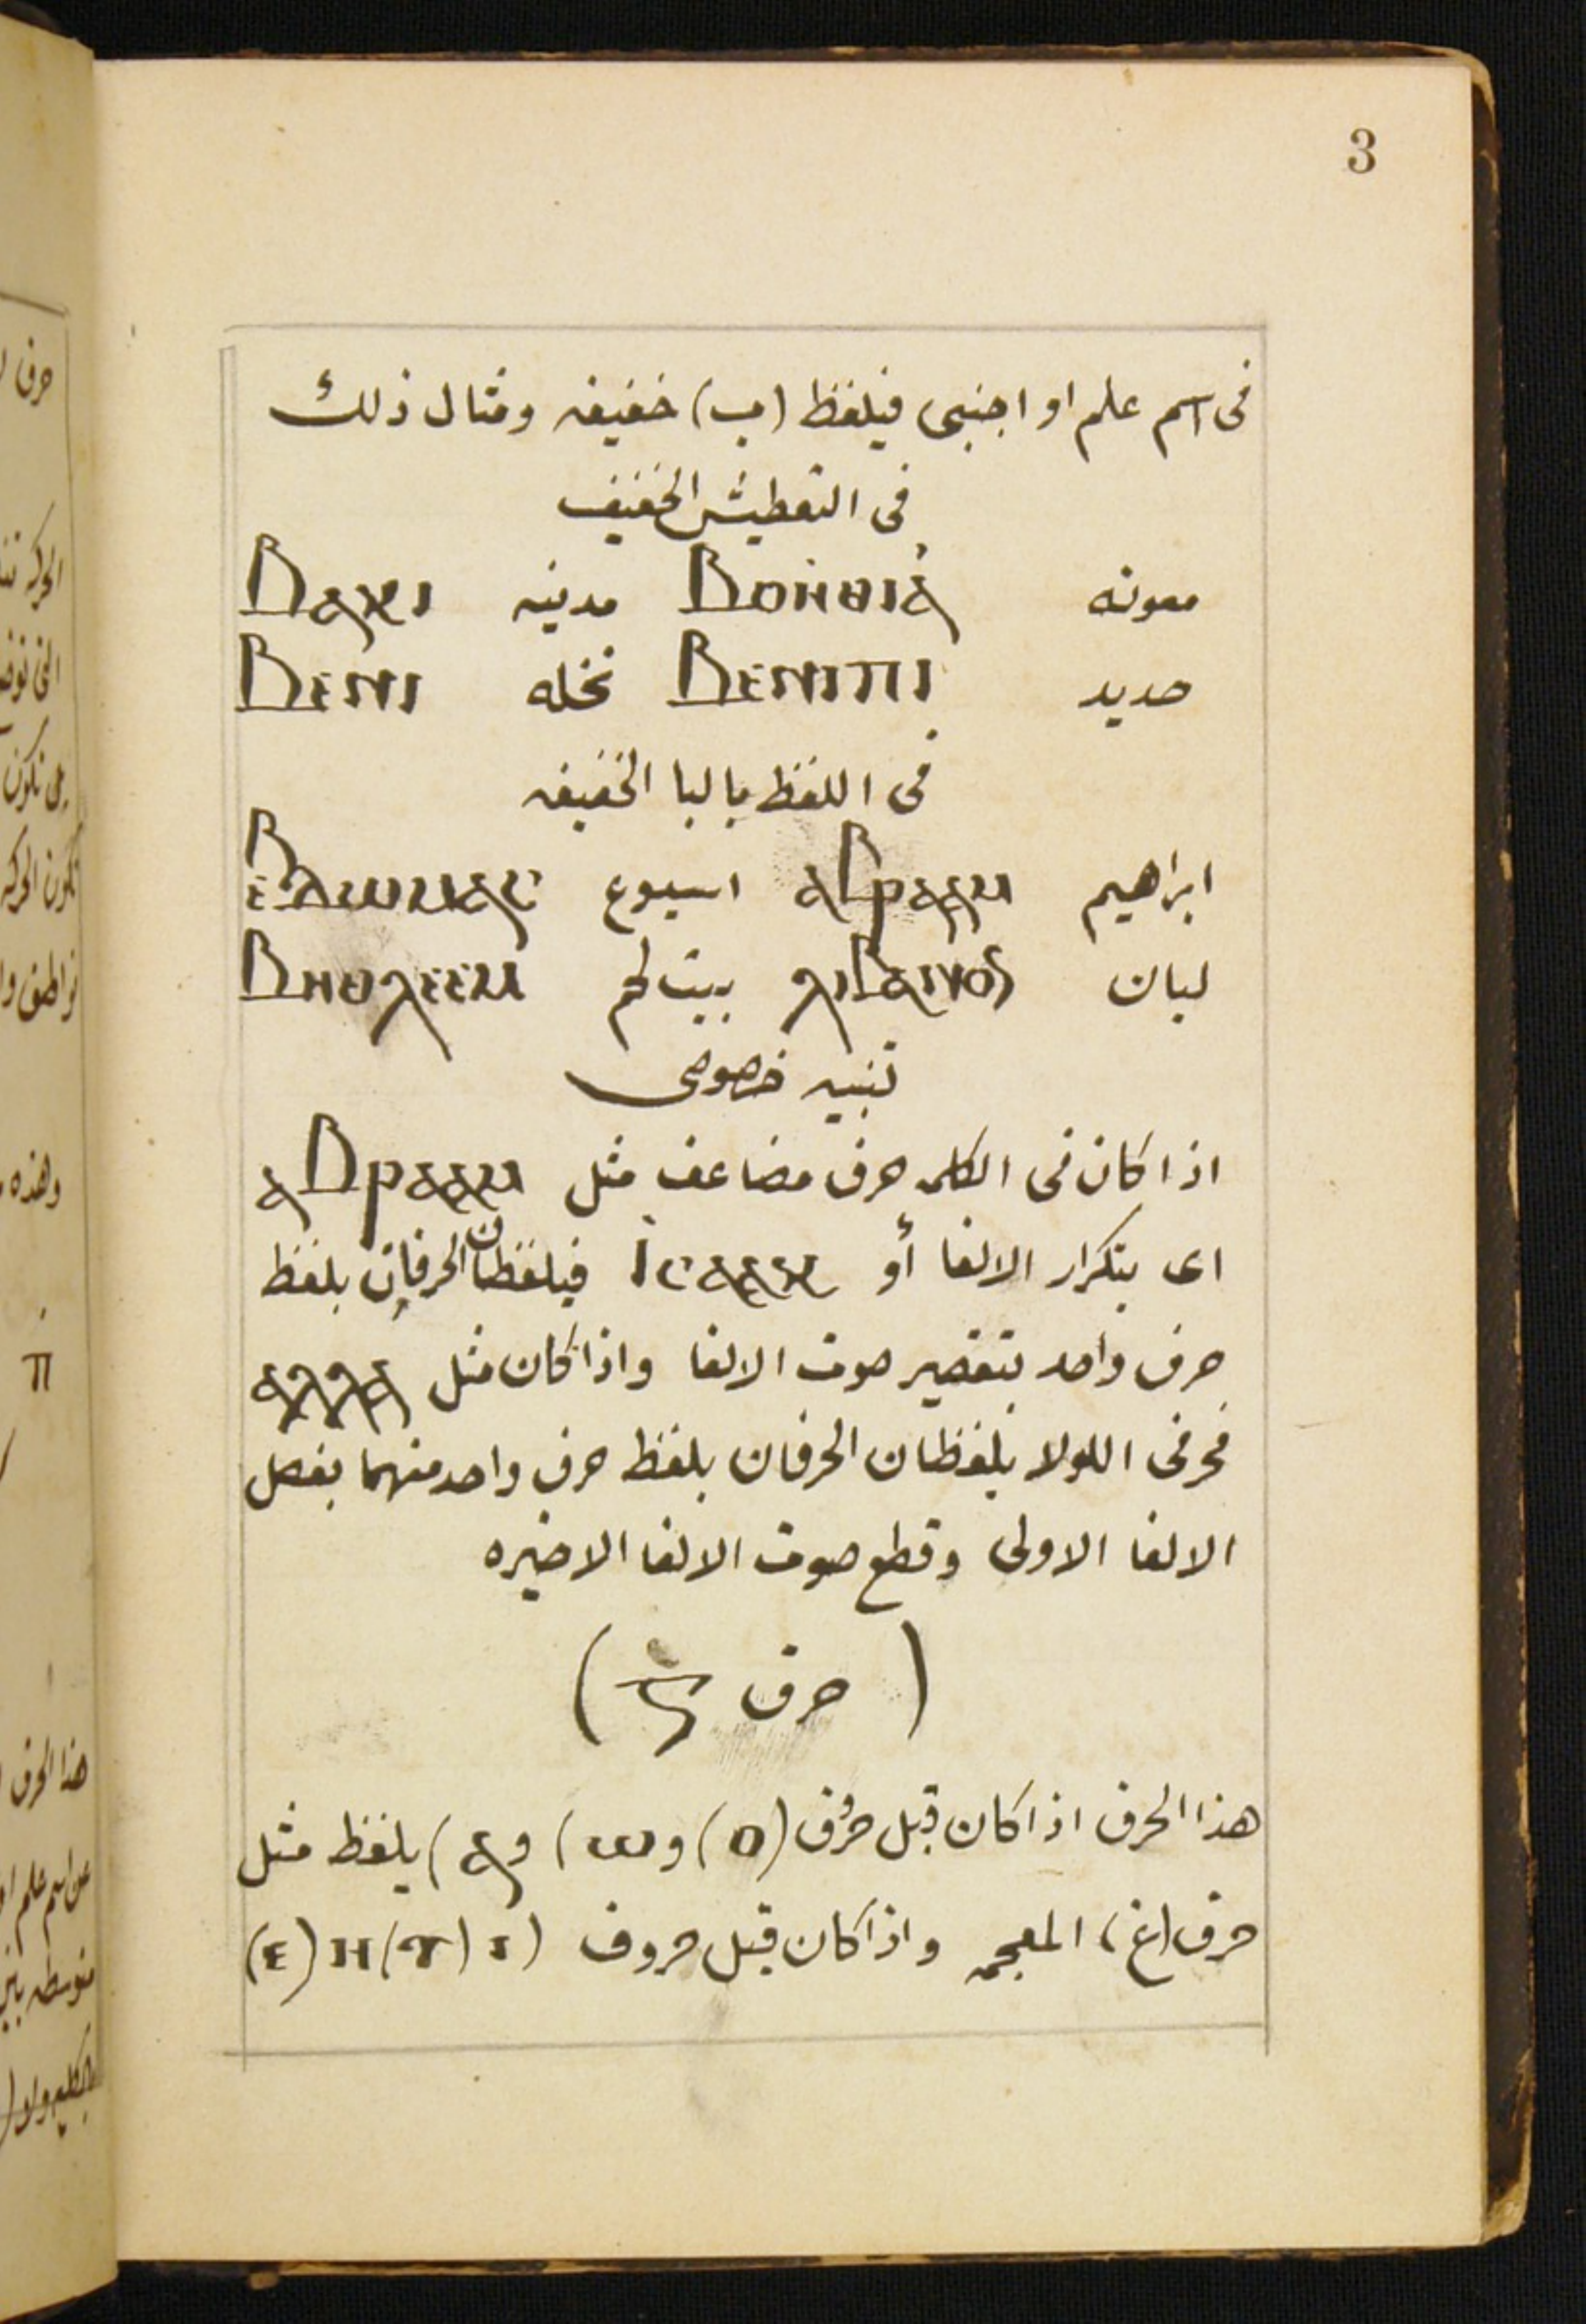 3
فى اسم علم او اجنبى فيلفظ (ب) خفيفه ومثال ذلك
فى التعطيش الخفيف
معونه Ⲃⲟⲏⲑⲓⲁ̀ مدينه Ⲃⲁⲕⲓ
حديد Ⲃⲉⲛⲓⲡⲓ نخله Ⲃⲉⲛⲓ
فى اللفظ بالبا الخفيفه
ابراهيم ⲁⲂⲣⲁⲁⲙ اسبوع ⲉⲂⲇⲱⲙⲁⲥ
لبان ⲗⲓⲂⲁⲛⲟⲥ بيت لحم Ⲃⲏⲑⲗⲉⲉⲙ
تنبيه خصوصى
اذا كان فى الكلمه حرف مضاعف مثل ⲁⲂⲣⲁⲁⲙ
اى بتكرار الالفا أو ⲓ̀ⲥⲁⲁⲕ فيلفظان الحرفان بلفظ
حرف واحد بتقصير صوت الالفا واذا كان مثل ⲁⲗⲗⲁ
فحرفى اللولا يلفظان الحرفان بلفظ حرف واحد منهما بفصل
الالفا الاولى وقطع صوت الالفا الاخيره
(حرف Ⲅ)
هذا الحرف اذا كان قبل حروف (ⲟ) و(ⲱ) و(ⲁ) يلفظ مثل
حرف (غ) المعجمه واذا كان قبل حروف (ⲓ) (ⲩ) ⲏ (ⲉ)